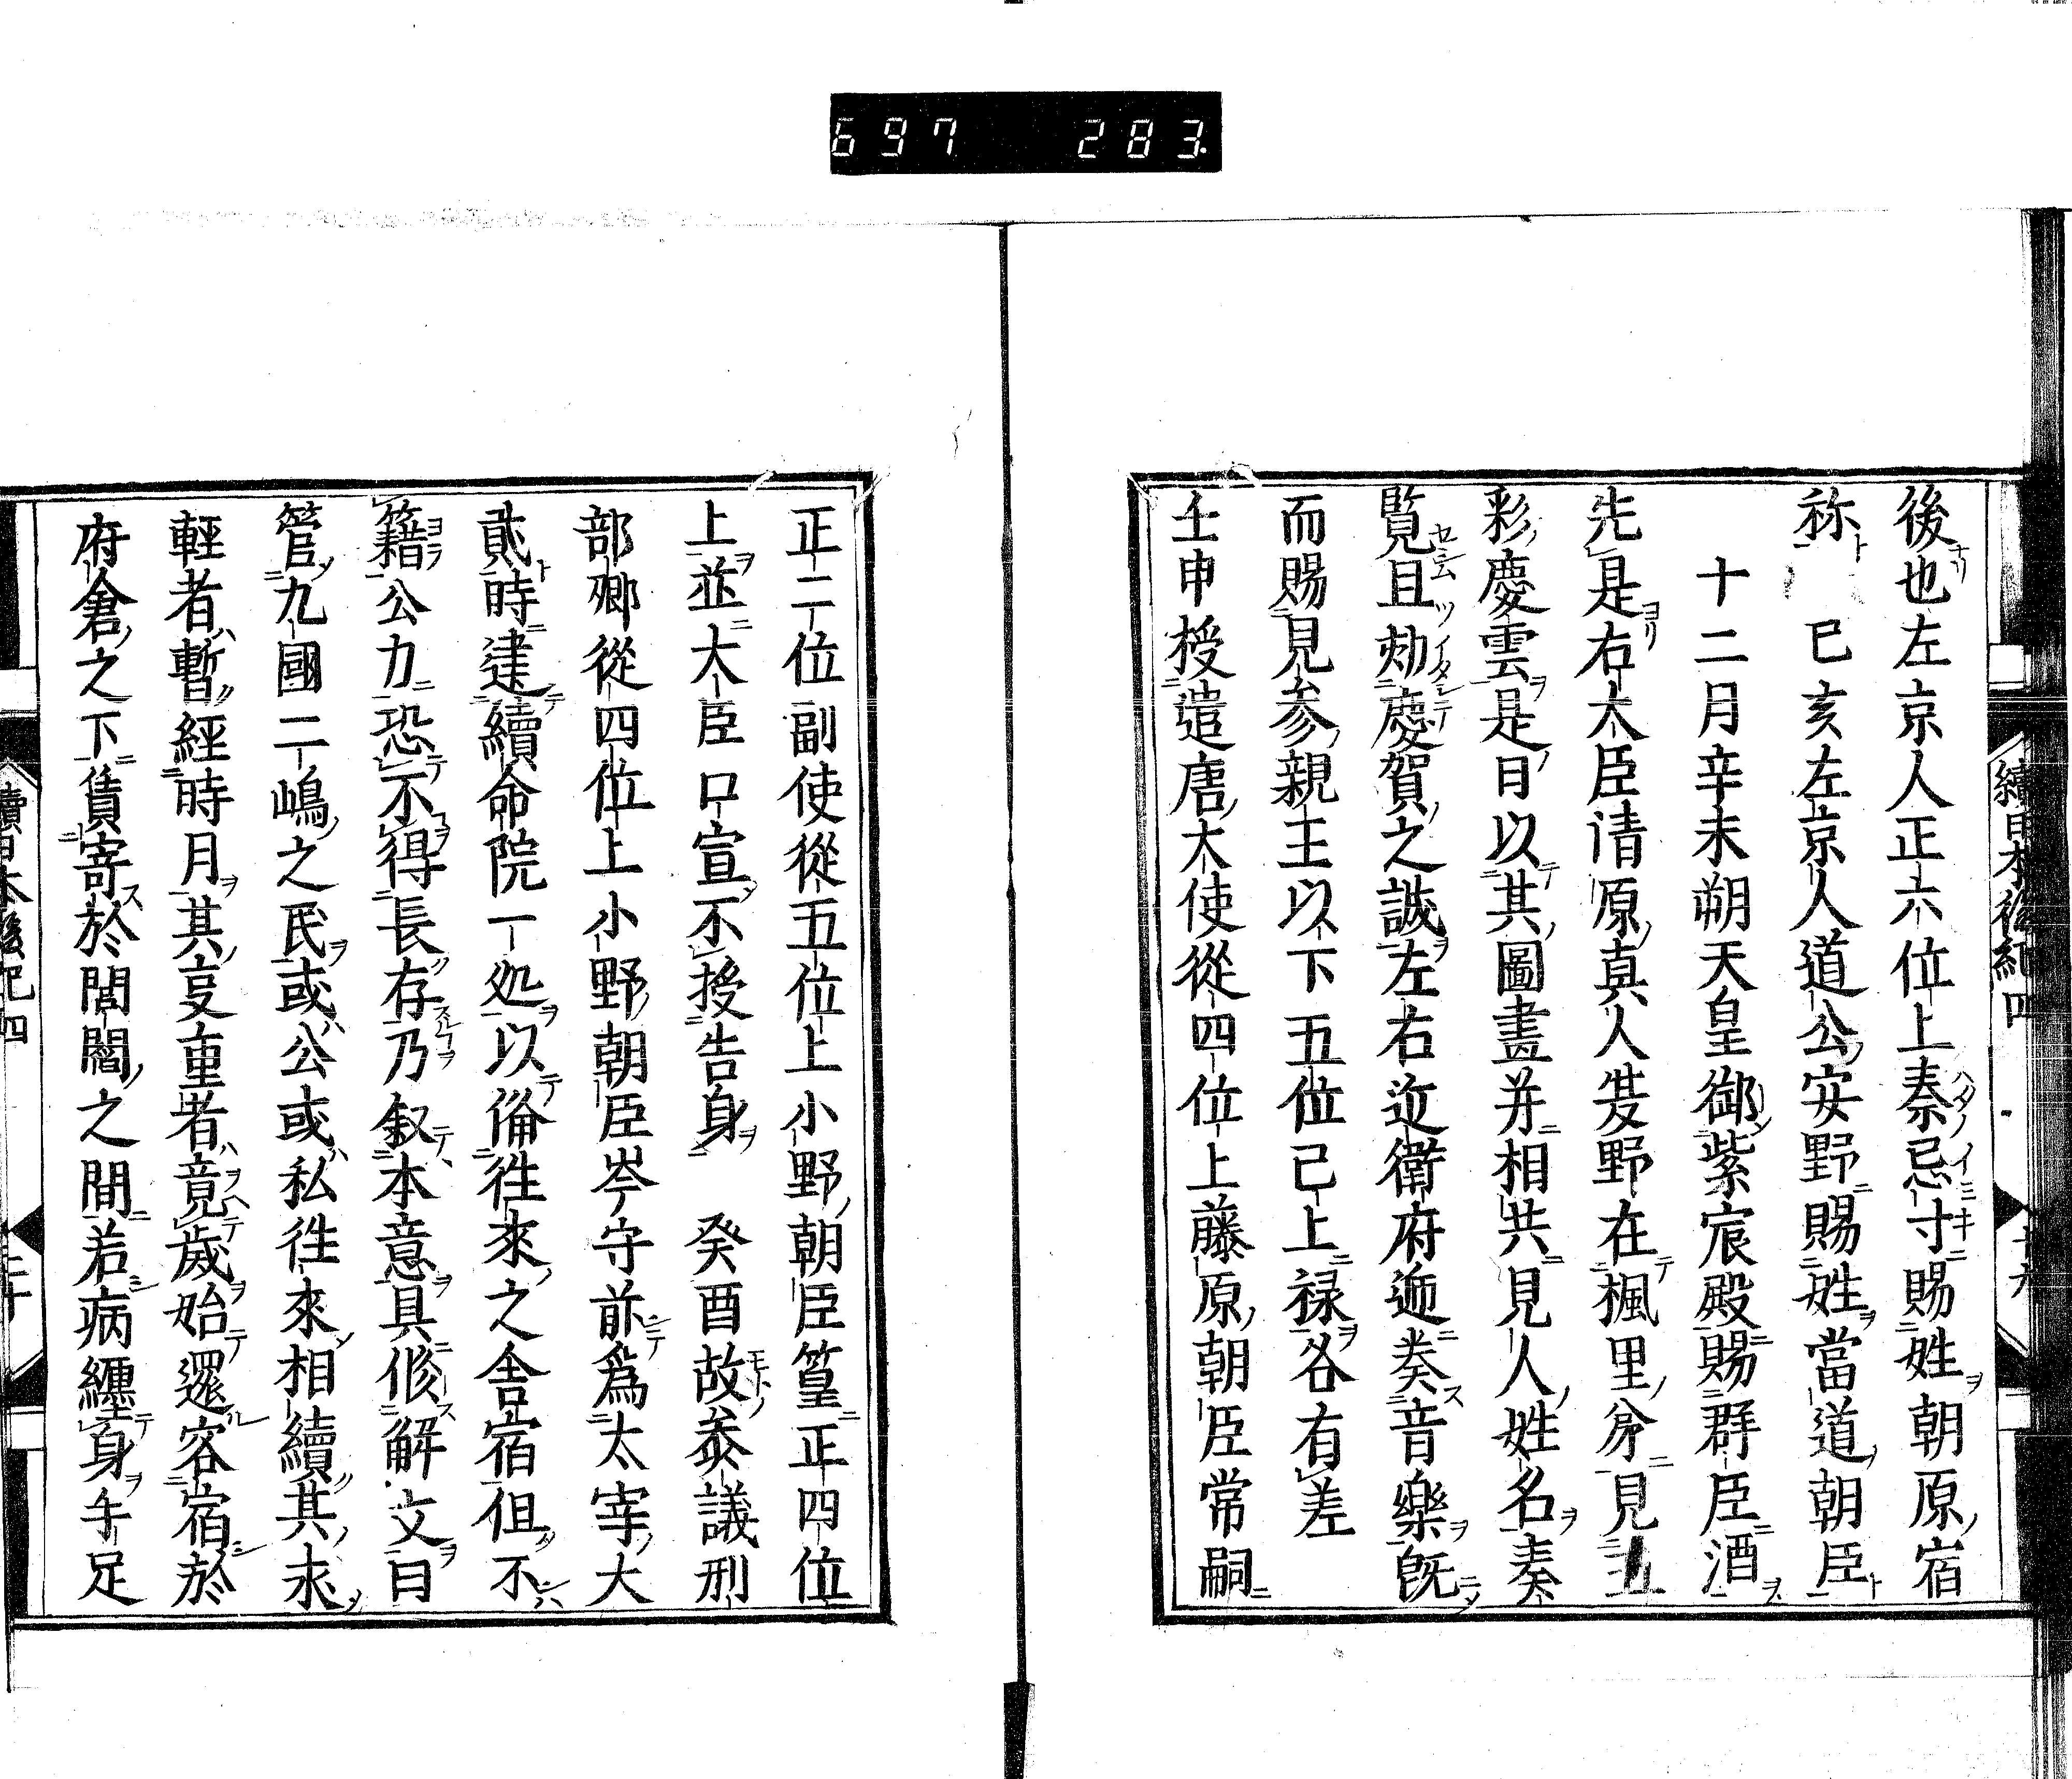 697 283
續日本後紀四
後也左京人正六位上秦忌寸賜姓朝原宿
祢 已亥左京人道公安野賜姓當道朝臣
十二月辛未朔天皇御紫宸殿賜群臣酒
先是右大臣清原真人㛮野在楓里㑹見五
彩慶雲是日以其圖畫并相共見人姓名奏
覧且勑慶賀之誠左右近衛府遞奏音樂既
而賜見参親王以下五位已上禄各有差
壬申授遣唐大使從四位上藤原朝臣常嗣
正二位副使從五位上小野朝臣篁正四位
上並大臣口宣不授告身 癸酉故叅議刑
部卿從四位上小野朝臣岑守前爲太宰大
貳時建續命院一処以俻徃來之舎宿但不
籍公力恐不得長存乃叙本意具修解文曰
管九國二嶋之民或公或私徃來相續其求
輕者暫經時月其㕝重者竟歳始還客宿於
府倉之下賃寄於閭閻之間若病纒身手足
續日本後紀四
二十